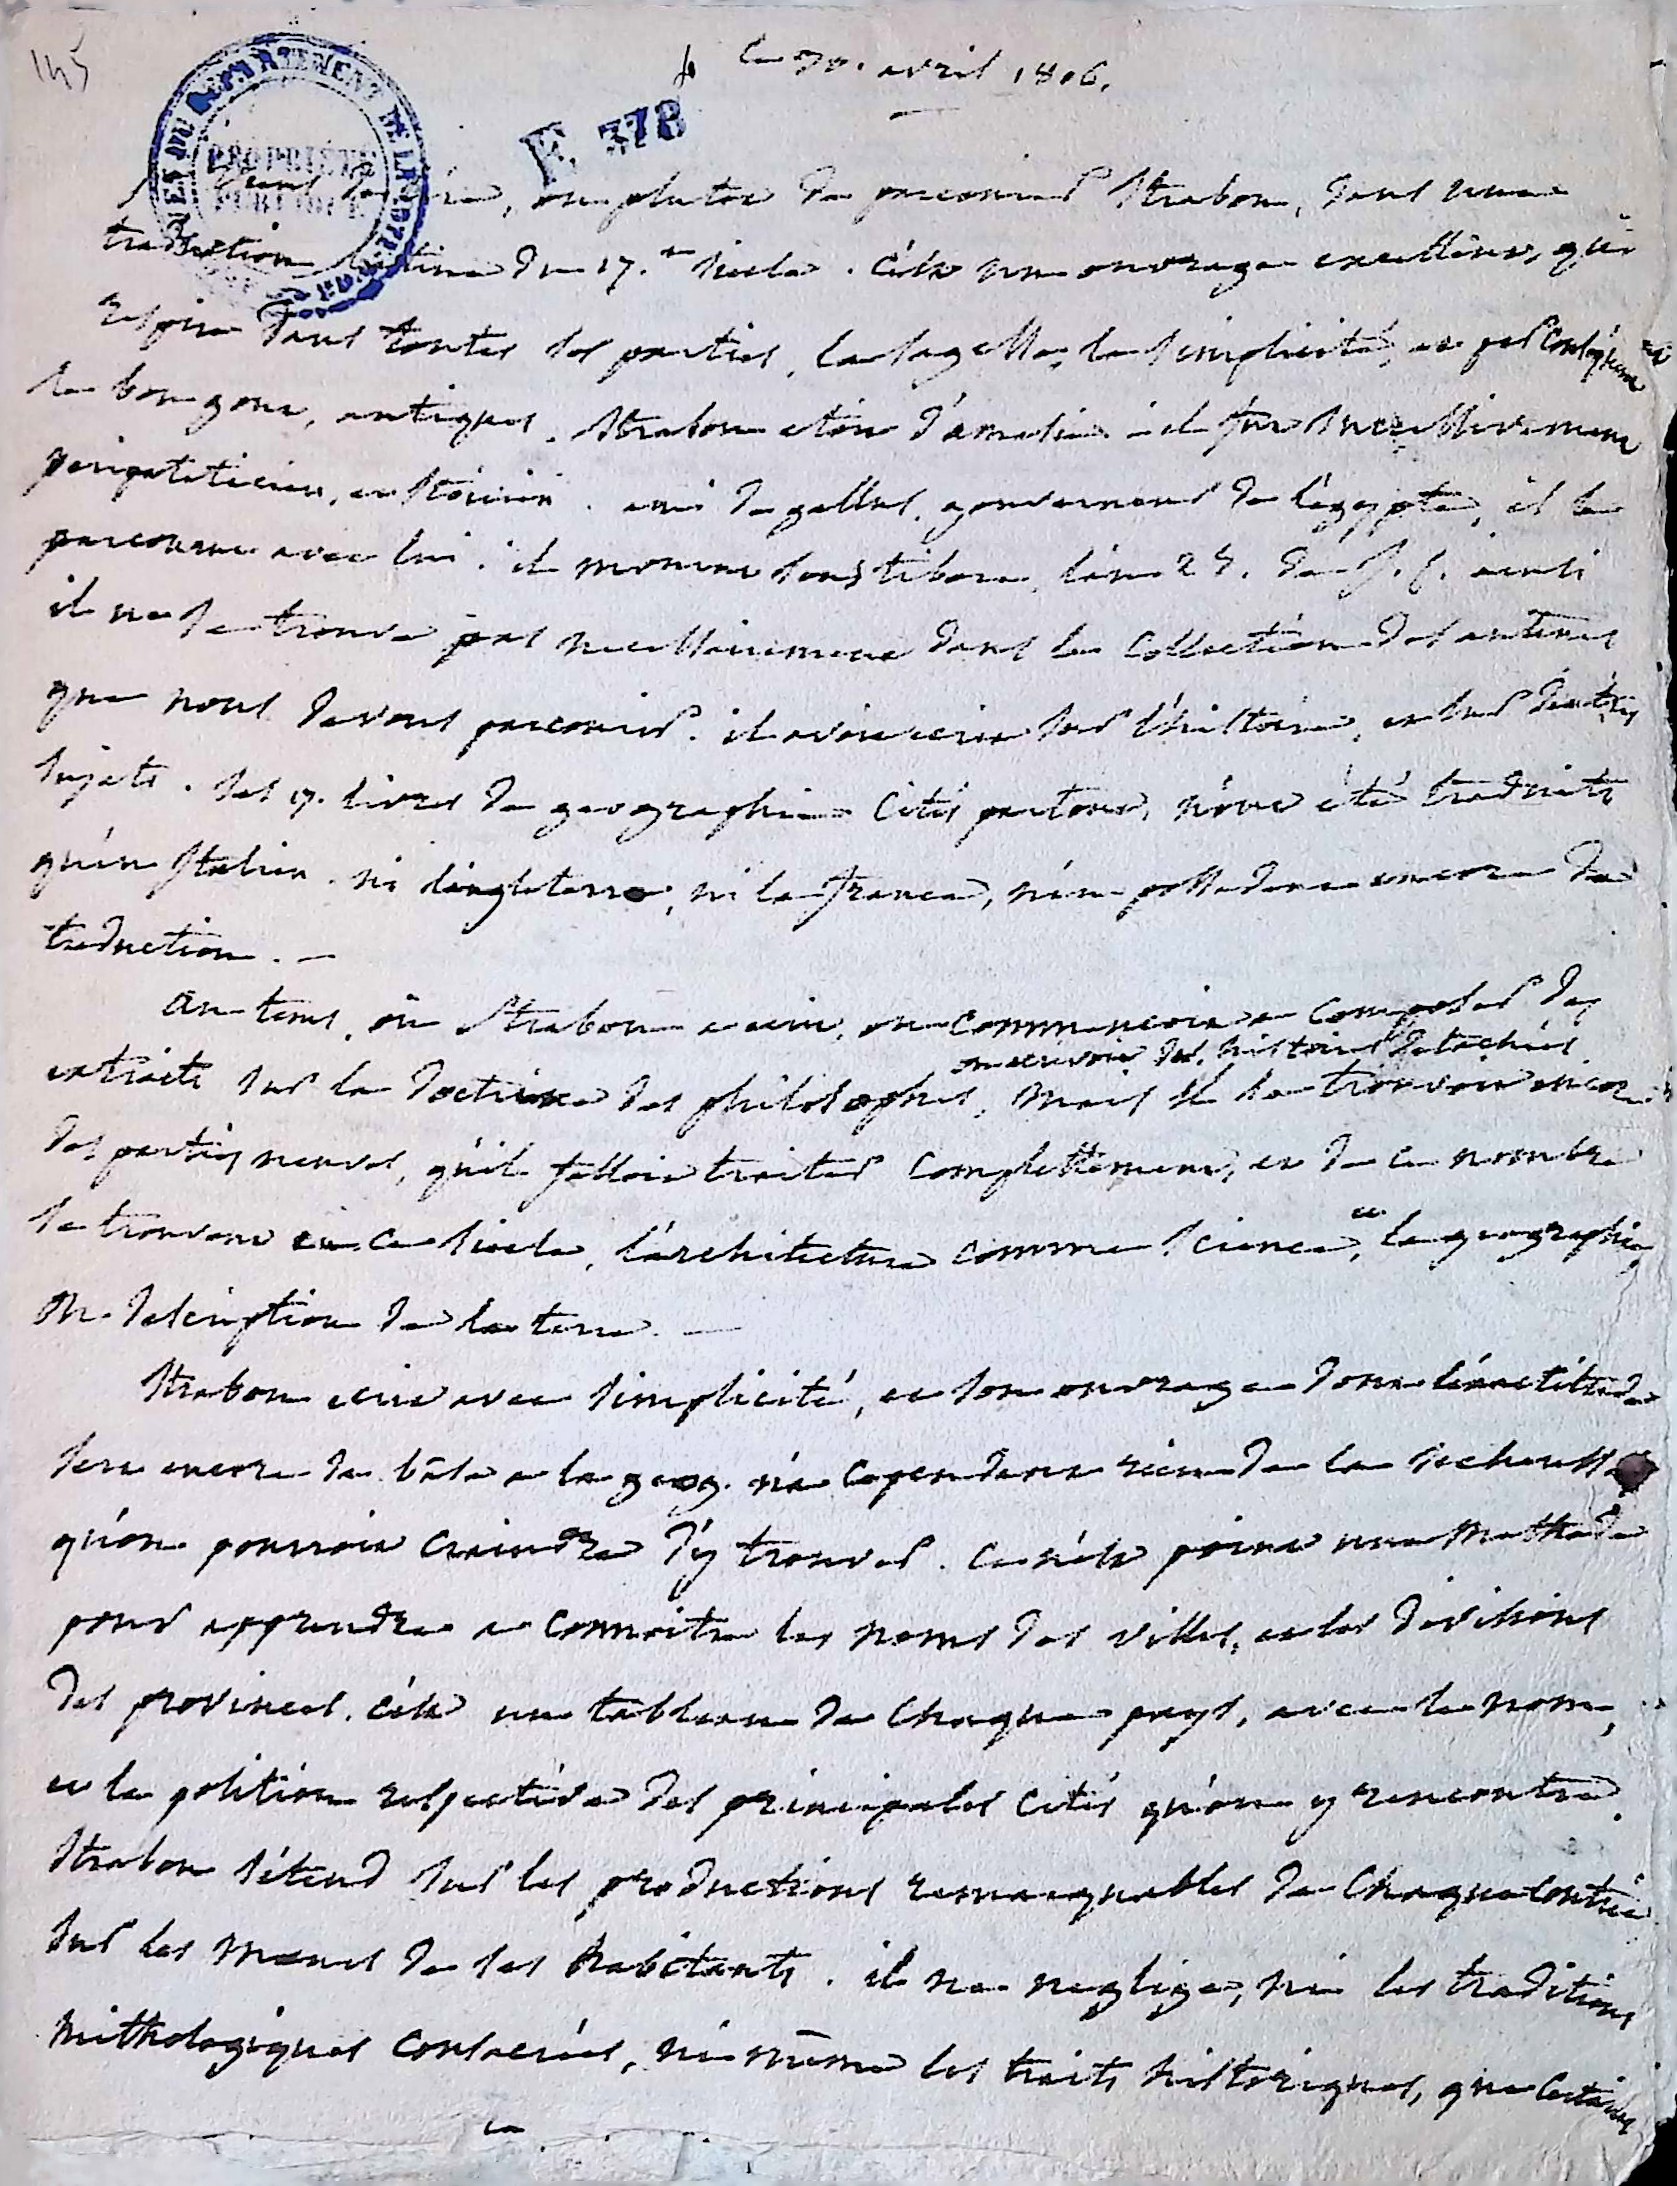 145
Ce 30. avril 1806.
E 378
ARCHIVES DU DEPARTEMENT DE LA COTE-D'OR
PROPRIÉTÉ PUBLIQUE
Je viens de lire, ou plutot de parcourir Strabon, dans une
traduction latine du 17.e siecle. c'est un ouvrage excellent, qui
respire dans toutes ses parties, la sagesse, la simplicité, et par consequent
le bon gout, antiques. Strabon etoit d'amasie. il fut successivement
peripateticien, et stoicien. ami de gallus, gouverneur de l'egypte, il la
parcourut avec lui. il mourut sous tibere, l'an 25. de J. C. ainsi
il ne se trouve pas necessairement dans la collection des auteurs
que nous devons parcourir. il avoit ecrit sur l'histoire, et sur d'autres
sujets. ses 17. livres de geographie cités partout, n'ont eté traduits
qu'en Italien. ni l'angleterre, ni la france, n'en possedent encore de
traduction. —
au tems, où Strabon a ecrit, on commencoit a composer des
extraits sur la doctrine des philosophes, on ecrivoit des histoires detachées. mais il se trouvoit encore
des parties neuves, qu'il falloit traiter complettement, et de ce nombre
se trouvent en ce siecle, l'architecture comme science, et la geographie
ou description de la terre. —
Strabon ecrit avec simplicité, et son ouvrage dont l'exactitude
sert encore de base a la geog. n'a cependant rien de la secheresse
qu'on pourroit craindre d'y trouver. ce n'est point une methode
pour apprendre a connoitre les noms des villes, et les divisions
des provinces. c'est un tableau de chaque pays, avec le nom,
et la position respective des principales cités qu'on y rencontre.
Strabon s'etend sur les productions remarquables de chaque contrée
sur les mœurs de ses habitants. il ne neglige, ni les traditions
mithologiques consacrées, ni même les traits historiques, que certaines